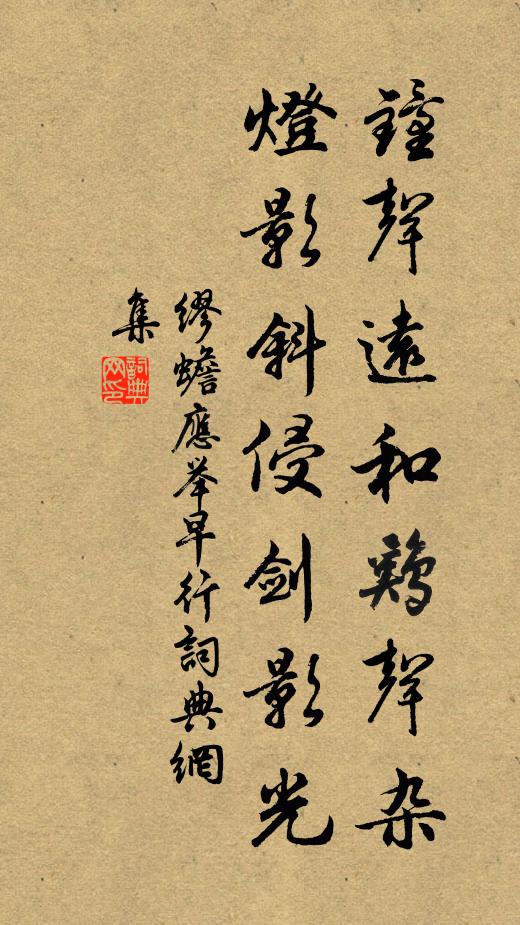 鐘聲遠和鷄聲杂
燈影斜侵劍影光
繆蟾應举早行詞典網
集
詞典網印